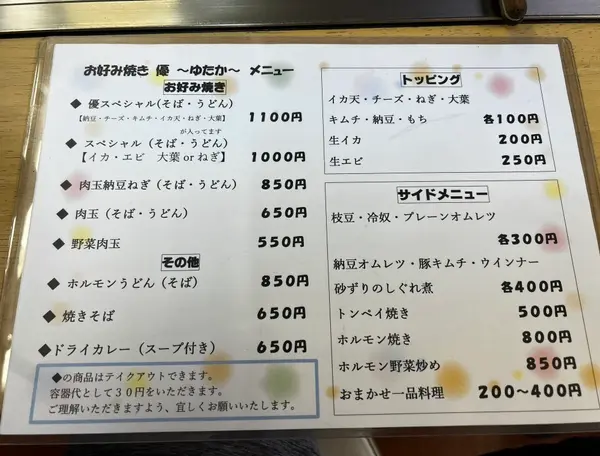 お好み焼き 優 ～ゆたか～ メニュー
お好み焼き
◆ 優スペシャル(そば・うどん)
【納豆・チーズ・キムチ・イカ天・ねぎ・大葉】 1100円
が入ってます
◆ スペシャル（そば・うどん）
【イカ・エビ 大葉orねぎ】 1000円
◆ 肉玉納豆ねぎ（そば・うどん） 850円
◆ 肉玉（そば・うどん） 650円
◆ 野菜肉玉 550円
その他
◆ ホルモンうどん（そば） 850円
◆ 焼きそば 650円
◆ドライカレー（スープ付き） 650円
◆の商品はテイクアウトできます。
容器代として３０円をいただきます。
ご理解いただきますよう、宜しくお願いいたします。
トッピング
イカ天・チーズ・ねぎ・大葉
キムチ・納豆・もち 各100円
生イカ 200円
生エビ 250円
サイドメニュー
枝豆・冷奴・プレーンオムレツ
各300円
納豆オムレツ・豚キムチ・ウインナー
砂ずりのしぐれ煮 各400円
トンペイ焼き 500円
ホルモン焼き 800円
ホルモン野菜炒め 850円
おまかせ一品料理 200～400円